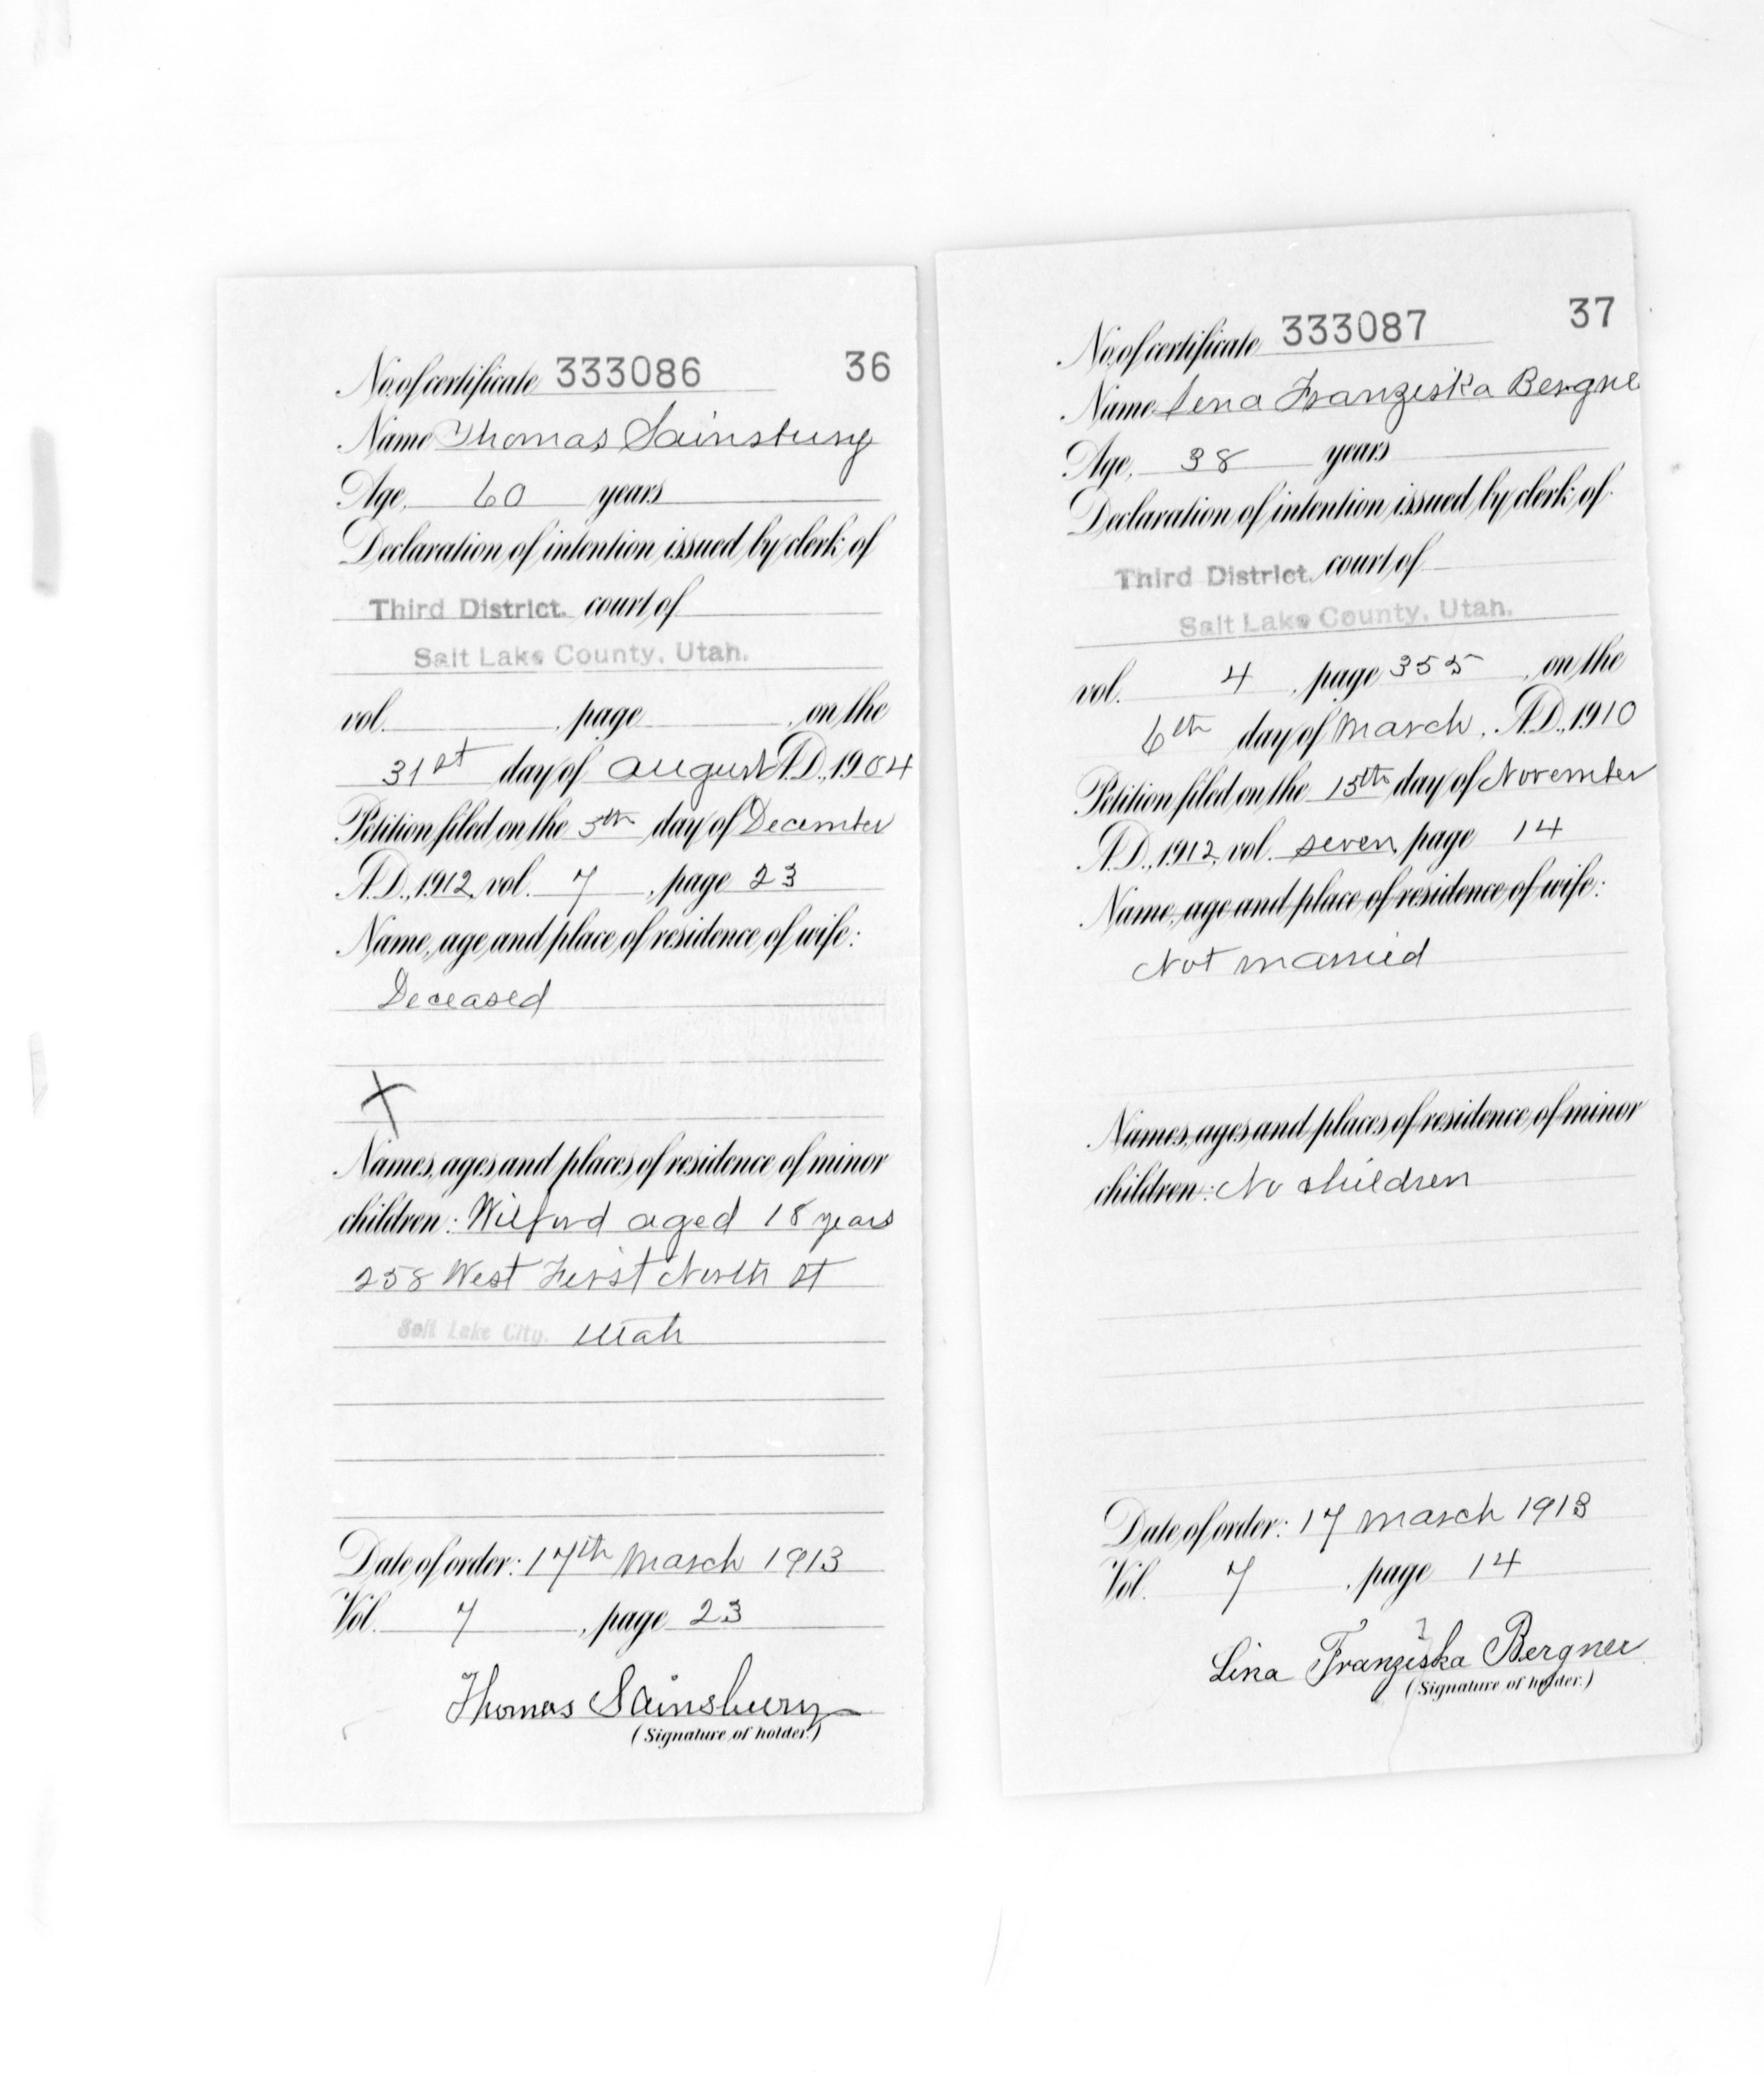 No. of certificate 333086 36
Name Thomas Sainsbury
Age, 60 years
Declaration of intention issued by clerk of
Third District. court of
Salt Lake County, Utah.
vol. , page , on the
31st day of August A.D., 1904
Petition filed on the 5th day of December
A.D., 1912, vol. 7, page 23
Name, age and place of residence of wife:
Deceased
X
Names, ages and places of residence of minor
children: Wilford aged 18 years
258 West First North St
Salt Lake City. Utah
Date of order: 17th March 1913
Vol. 7, page 23
Thomas Sainsbury
(Signature of holder.)
No. of certificate 333087 37
Name Lena Franziska Bergne
Age, 38 years
Declaration of intention issued by clerk of
Third District. court of
Salt Lake County, Utah.
vol. 4, page 355, on the
6th day of March, A.D., 1910
Petition filed on the 15th day of November
A.D., 1912, vol. seven, page 14
Name, age and place of residence of wife:
Not married
Names, ages and places of residence of minor
children: No children
Date of order: 17 March 1913
Vol. 7, page 14
Lina Franziska Bergner
(Signature of holder.)